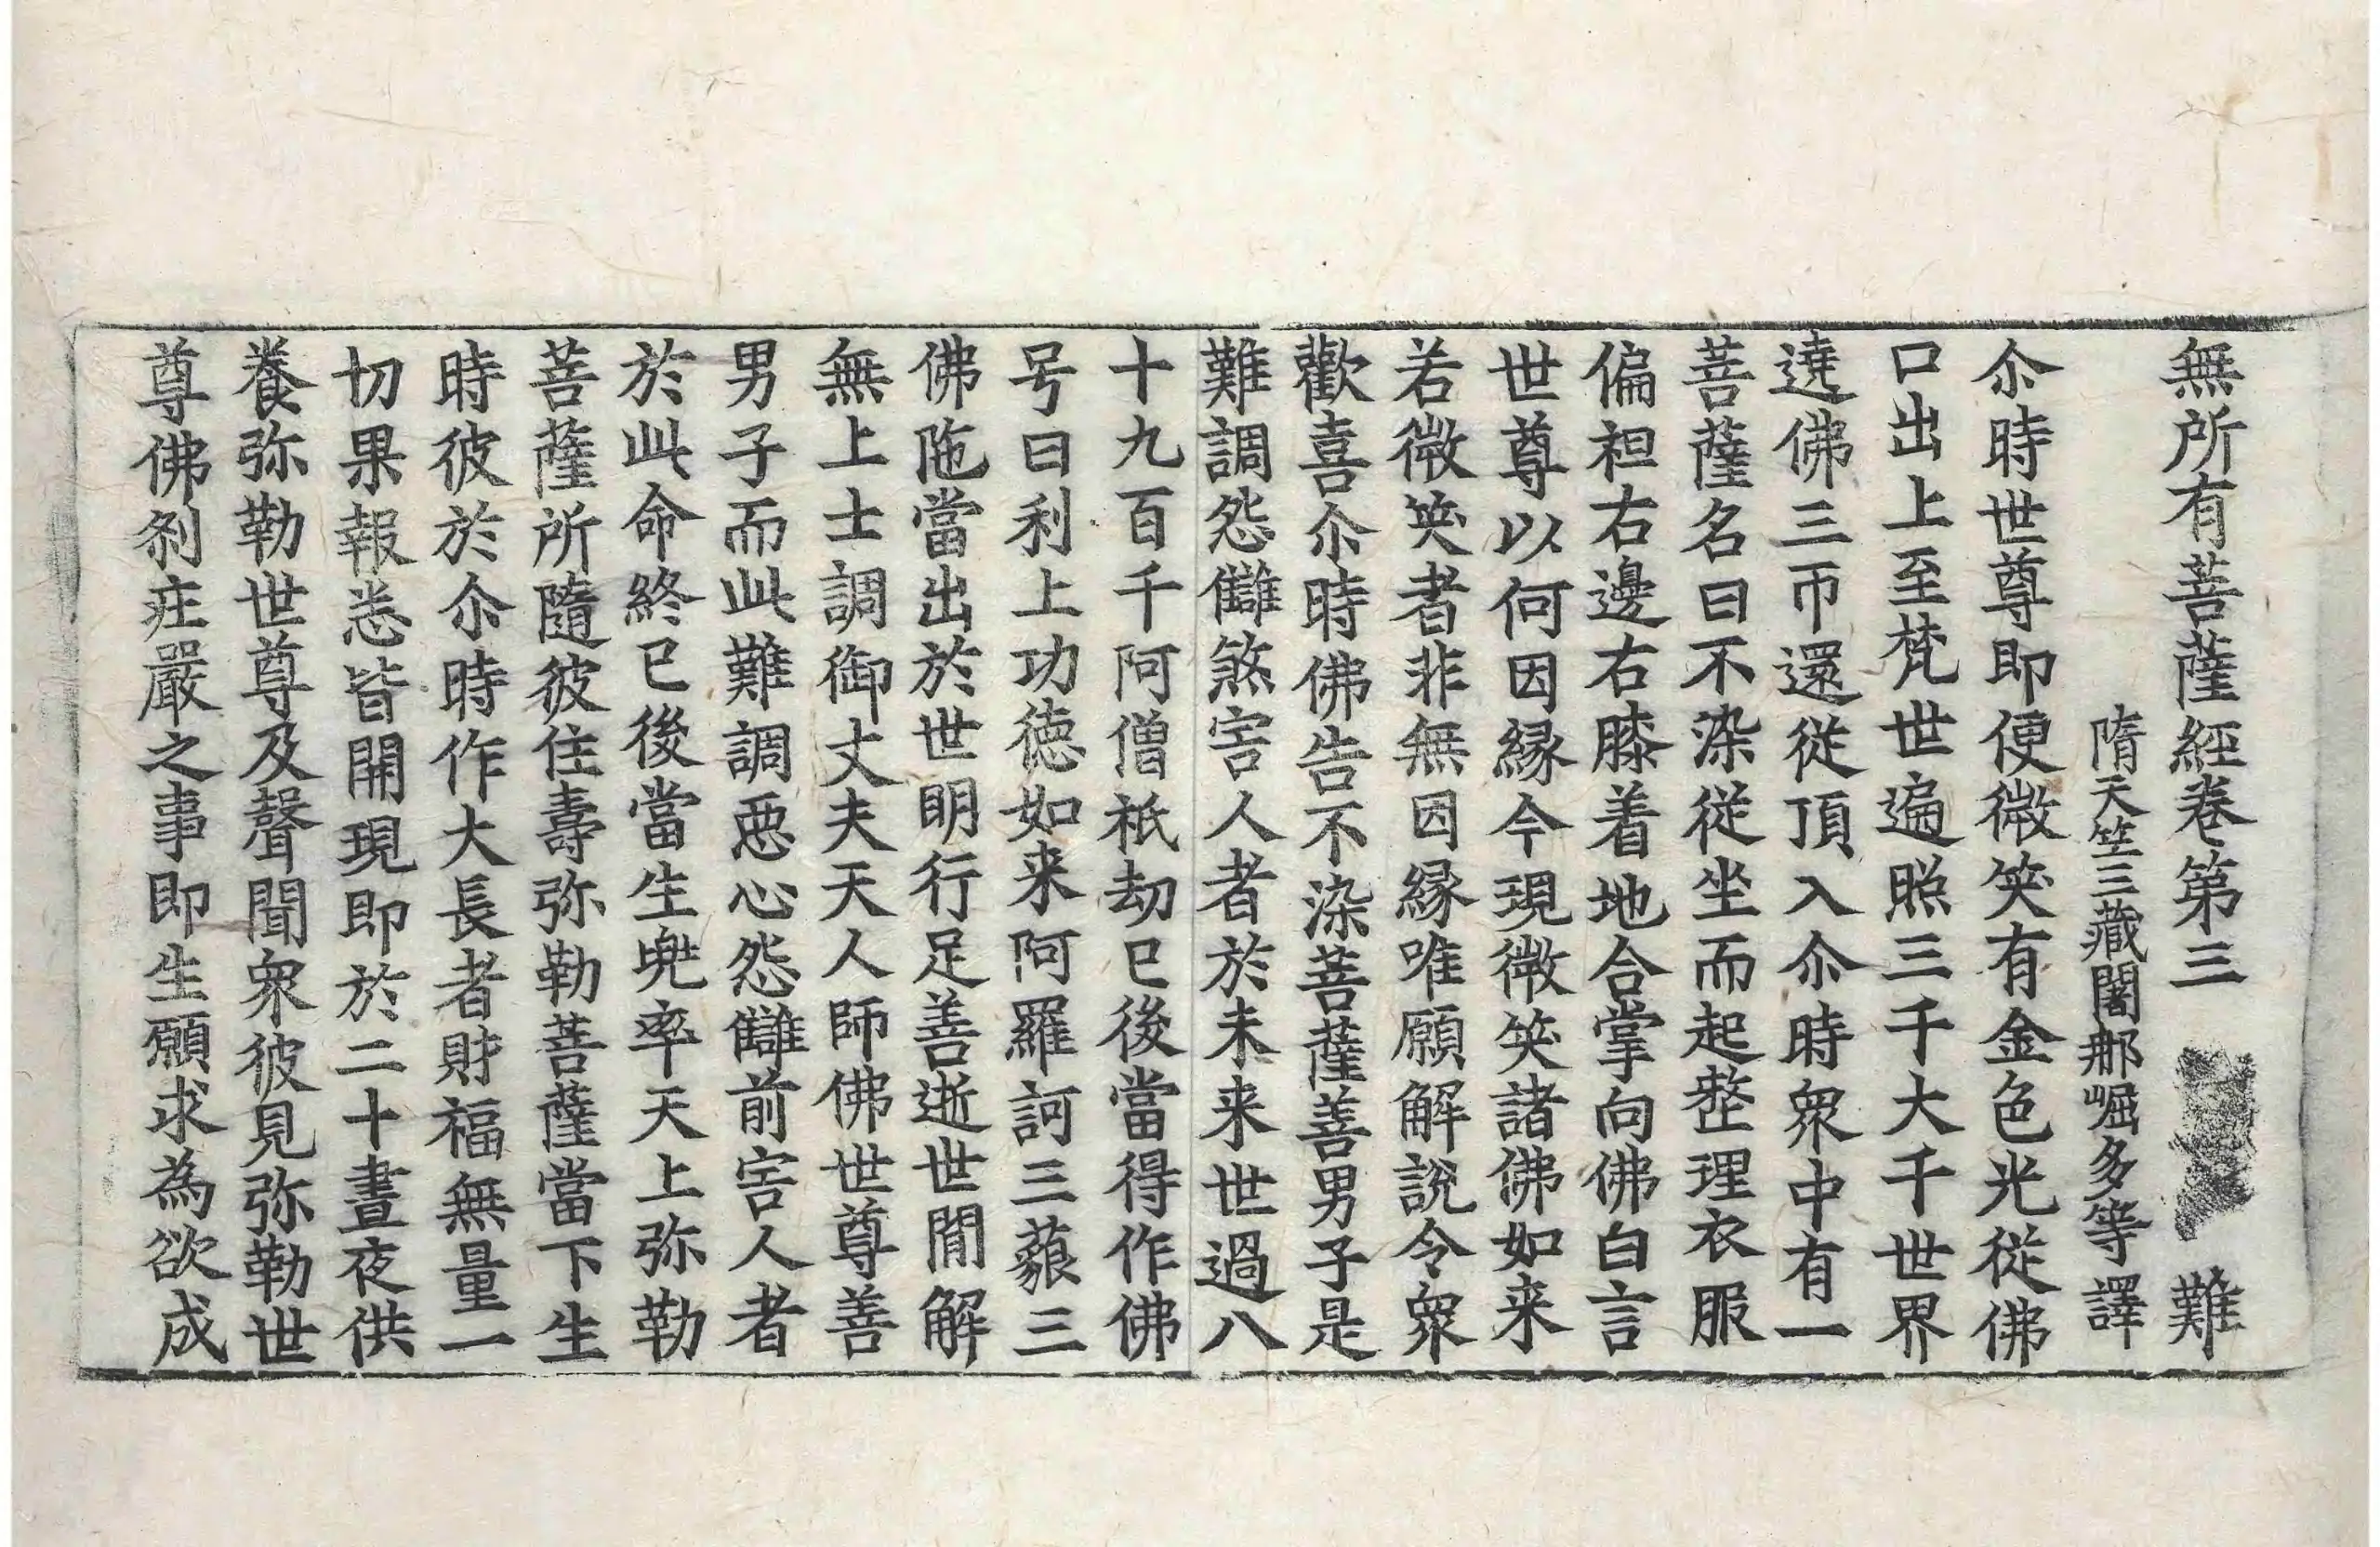 無所有菩薩經卷第三 難
隋天竺三藏闍那崛多等譯
尒時世尊即便微笑有金色光從佛
口出上至梵世遍照三千大千世界
遶佛三帀還從頂入尒時衆中有一
菩薩名曰不染從坐而起整理衣服
偏袒右邊右膝着地合掌向佛白言
世尊以何因縁今現微笑諸佛如来
若微笑者非無因縁唯願解說令衆
歡喜尒時佛告不染菩薩善男子是
難調怨讎煞害人者於未来世過八
十九百千阿僧祇劫已後當得作佛
号曰利上功德如来阿羅訶三藐三
佛陁當出於世明行足善逝世間解
無上士調御丈夫天人師佛世尊善
男子而此難調惡心怨讎前害人者
於此命終已後當生兜率天上弥勒
菩薩所隨彼住壽弥勒菩薩當下生
時彼於尒時作大長者財福無量一
切果報悉皆開現即於二十晝夜供
養弥勒世尊及聲聞衆彼見弥勒世
尊佛刹庄嚴之事即生願求為欲成